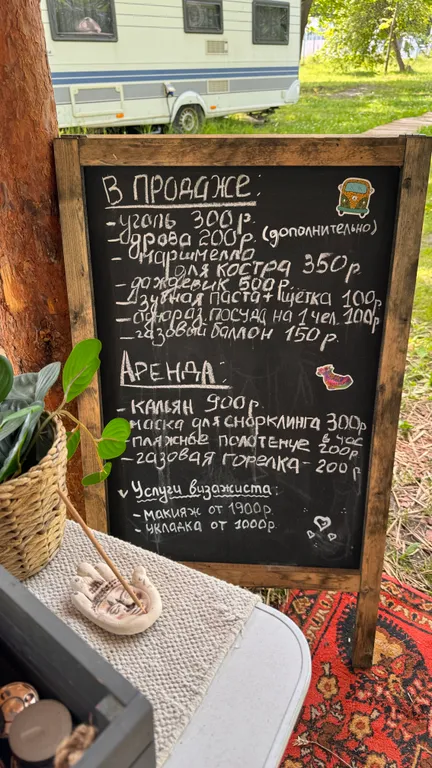 В ПРОДАЖЕ:
-уголь 300р.
-дрова 200р. (дополнительно)
- маршмелло
для костра 350р
- дождевик 500р.
-зубная паста+щётка 100р
-однораз.посуда на 1 чел. 100р
-газовый баллон 150р.
АРЕНДА:
- кальян 900р.
-маска для снорклинга 300р
в час
-пляжное полотенце 200р.
-газовая горелка- 200р
Услуги визажиста:
- макияж от 1900р.
- укладка от 1000р.